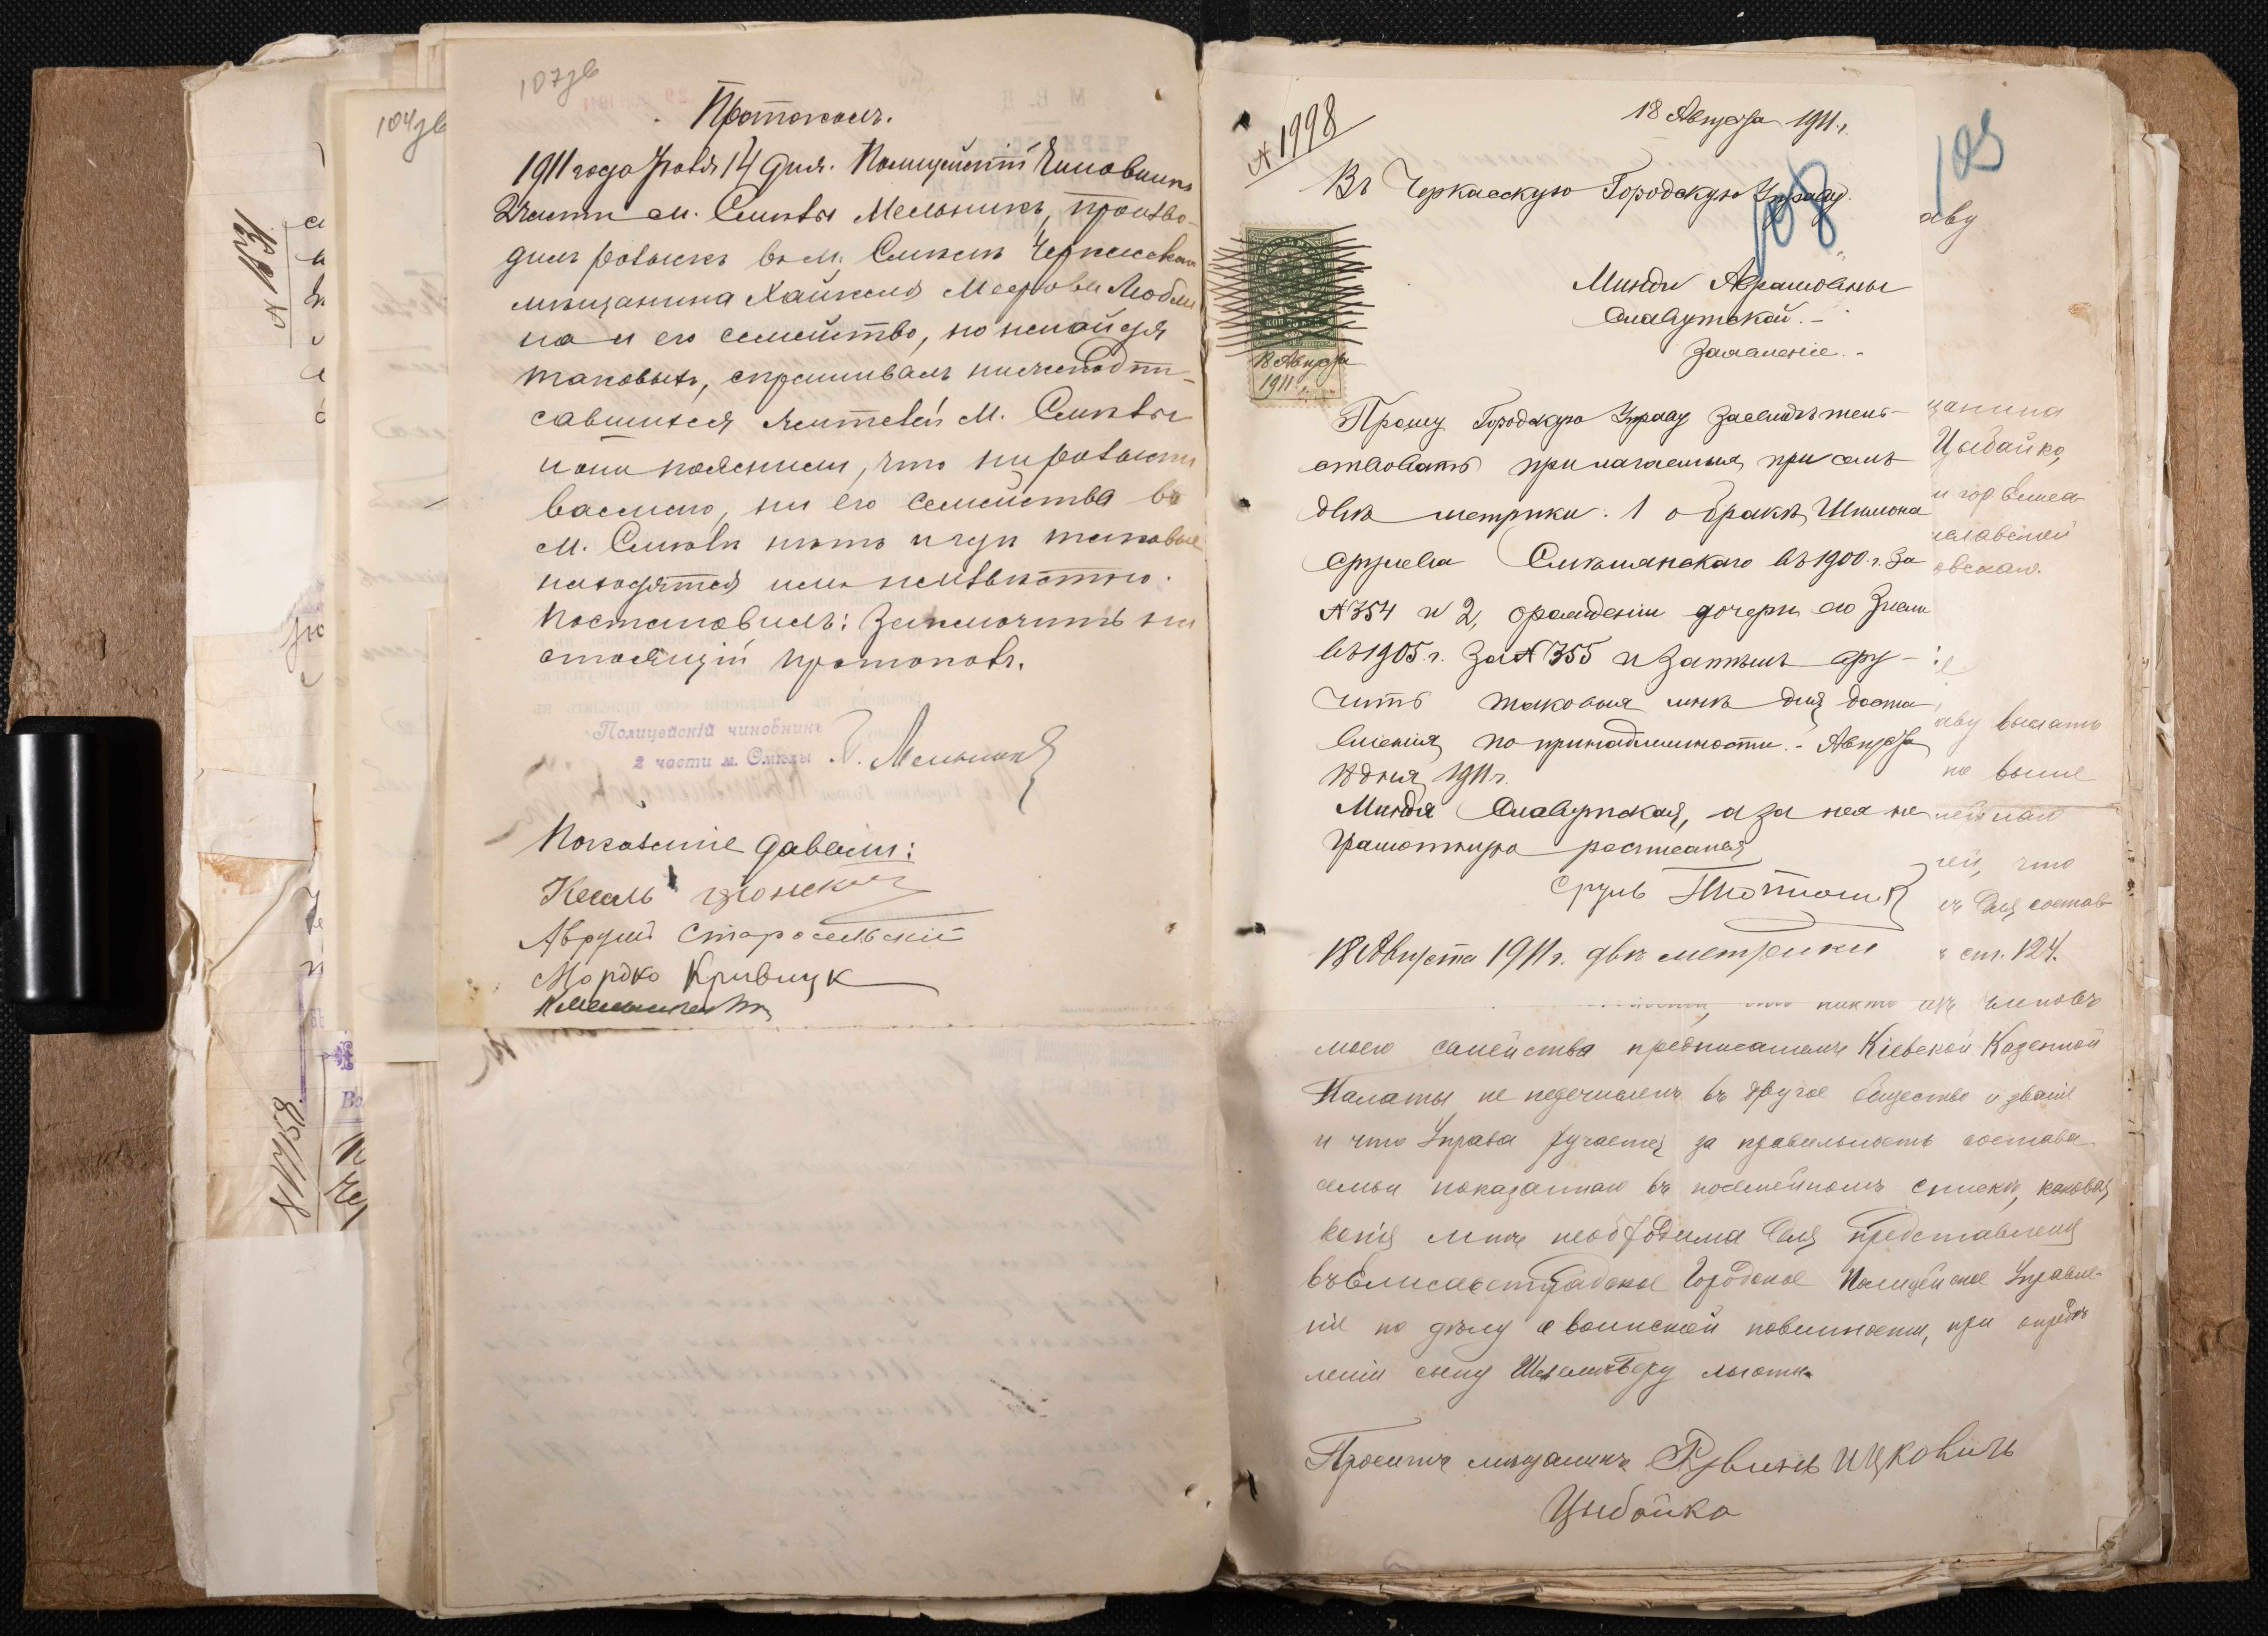 107зв
Протоколъ.
1911 года Июля 14 дня. Полицейскій Чиновникъ
2 части м. Смѣлы Мельникъ, произво-
дилъ розыскъ въ м. Смѣлѣ Черкасскаго
мѣщанина Хайкеля Меерова Любли
на и его семейство, но не найдя
таковыхъ, спрашивалъ нижеподпи-
савшихся жителей м. Смѣлы
и они пояснили, что ни розыски
ваемаго, ни его семейства въ
м. Смѣлѣ нѣтъ и гдѣ таковые
находятся имъ неизвѣстно.
Постановилъ: Заключить на
стоящій протоколъ.
Полицейскій чиновникъ
2 части м. Смѣлы
Мельникъ
Показаніе давали:
Аврумъ Старосельскій
Мордко Кривицк
104зв
N 1631
N 1758
N 1998
18 Августа 1911 г.
Въ Черкасскую Городскую Управу.
108
18 Августа
1911 г.
Минди Абрамовны
Славутской. -
Заявленіе. -
Прошу Городскую Управу засвидѣтель-
ствовать прилагаемыя при семъ
двѣ метрики. 1 о бракѣ Шимона
Срулева Смѣлянскаго въ 1900 г. за
N 354 и 2, о рожденіи дочери его
въ 1905 г. за N 355 и затѣмъ вру-
чить таковыя мнѣ для доста
вленія по принадлежности. - Августа
18 дня 1911 г.
Миндя Славутская, а за нея не
грамотную росписался
Сруль
18 Августа 1911 г. двѣ метрики
109
аву
щанина
Цыбайко,
аву выслать
но выше
чей, что
для состав-
ст. 124.
никто изъ членовъ
моего семейства предписаніемъ Кіевской Казенной
Палаты не перечисленъ въ другое общество и званіе
и что Управа ручается за правильность состава
семьи показаннаго въ посемейномъ списке, каковая
копія мнѣ необходима для представленія
въ Елисаветградское Городское Полицейское Управле-
ніе по дѣлу о воинской повинности, при опредѣ
леніи сыну льготы.
Проситъ мѣщанинъ Рувинъ Ицковичъ
Цыбайко